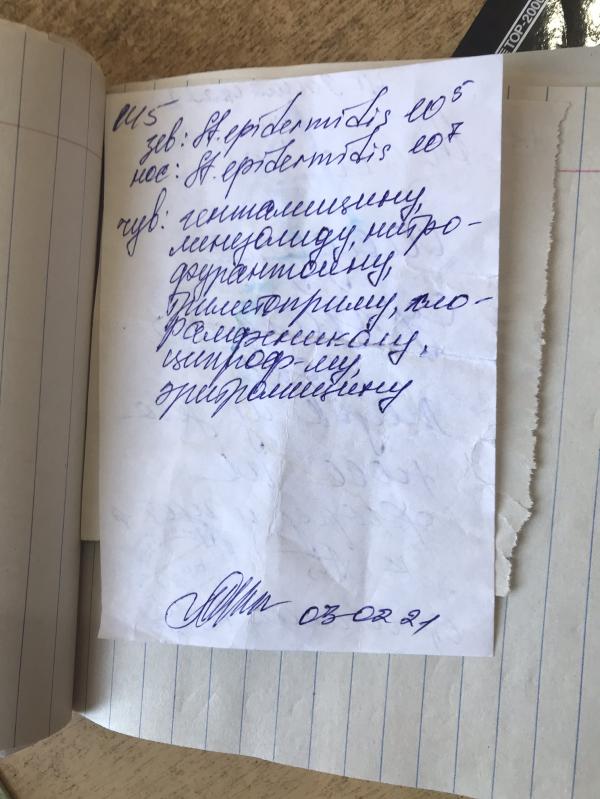 ETOP-200
645
зев: St. epidermidis 10⁵
нос: St. epidermidis 10⁷
чув: гентамицину,
линезолиду, нитро-
фурантоину,
триметоприму, хло-
рамфениколу,
ципроф-му,
эритромицину
03.02.21